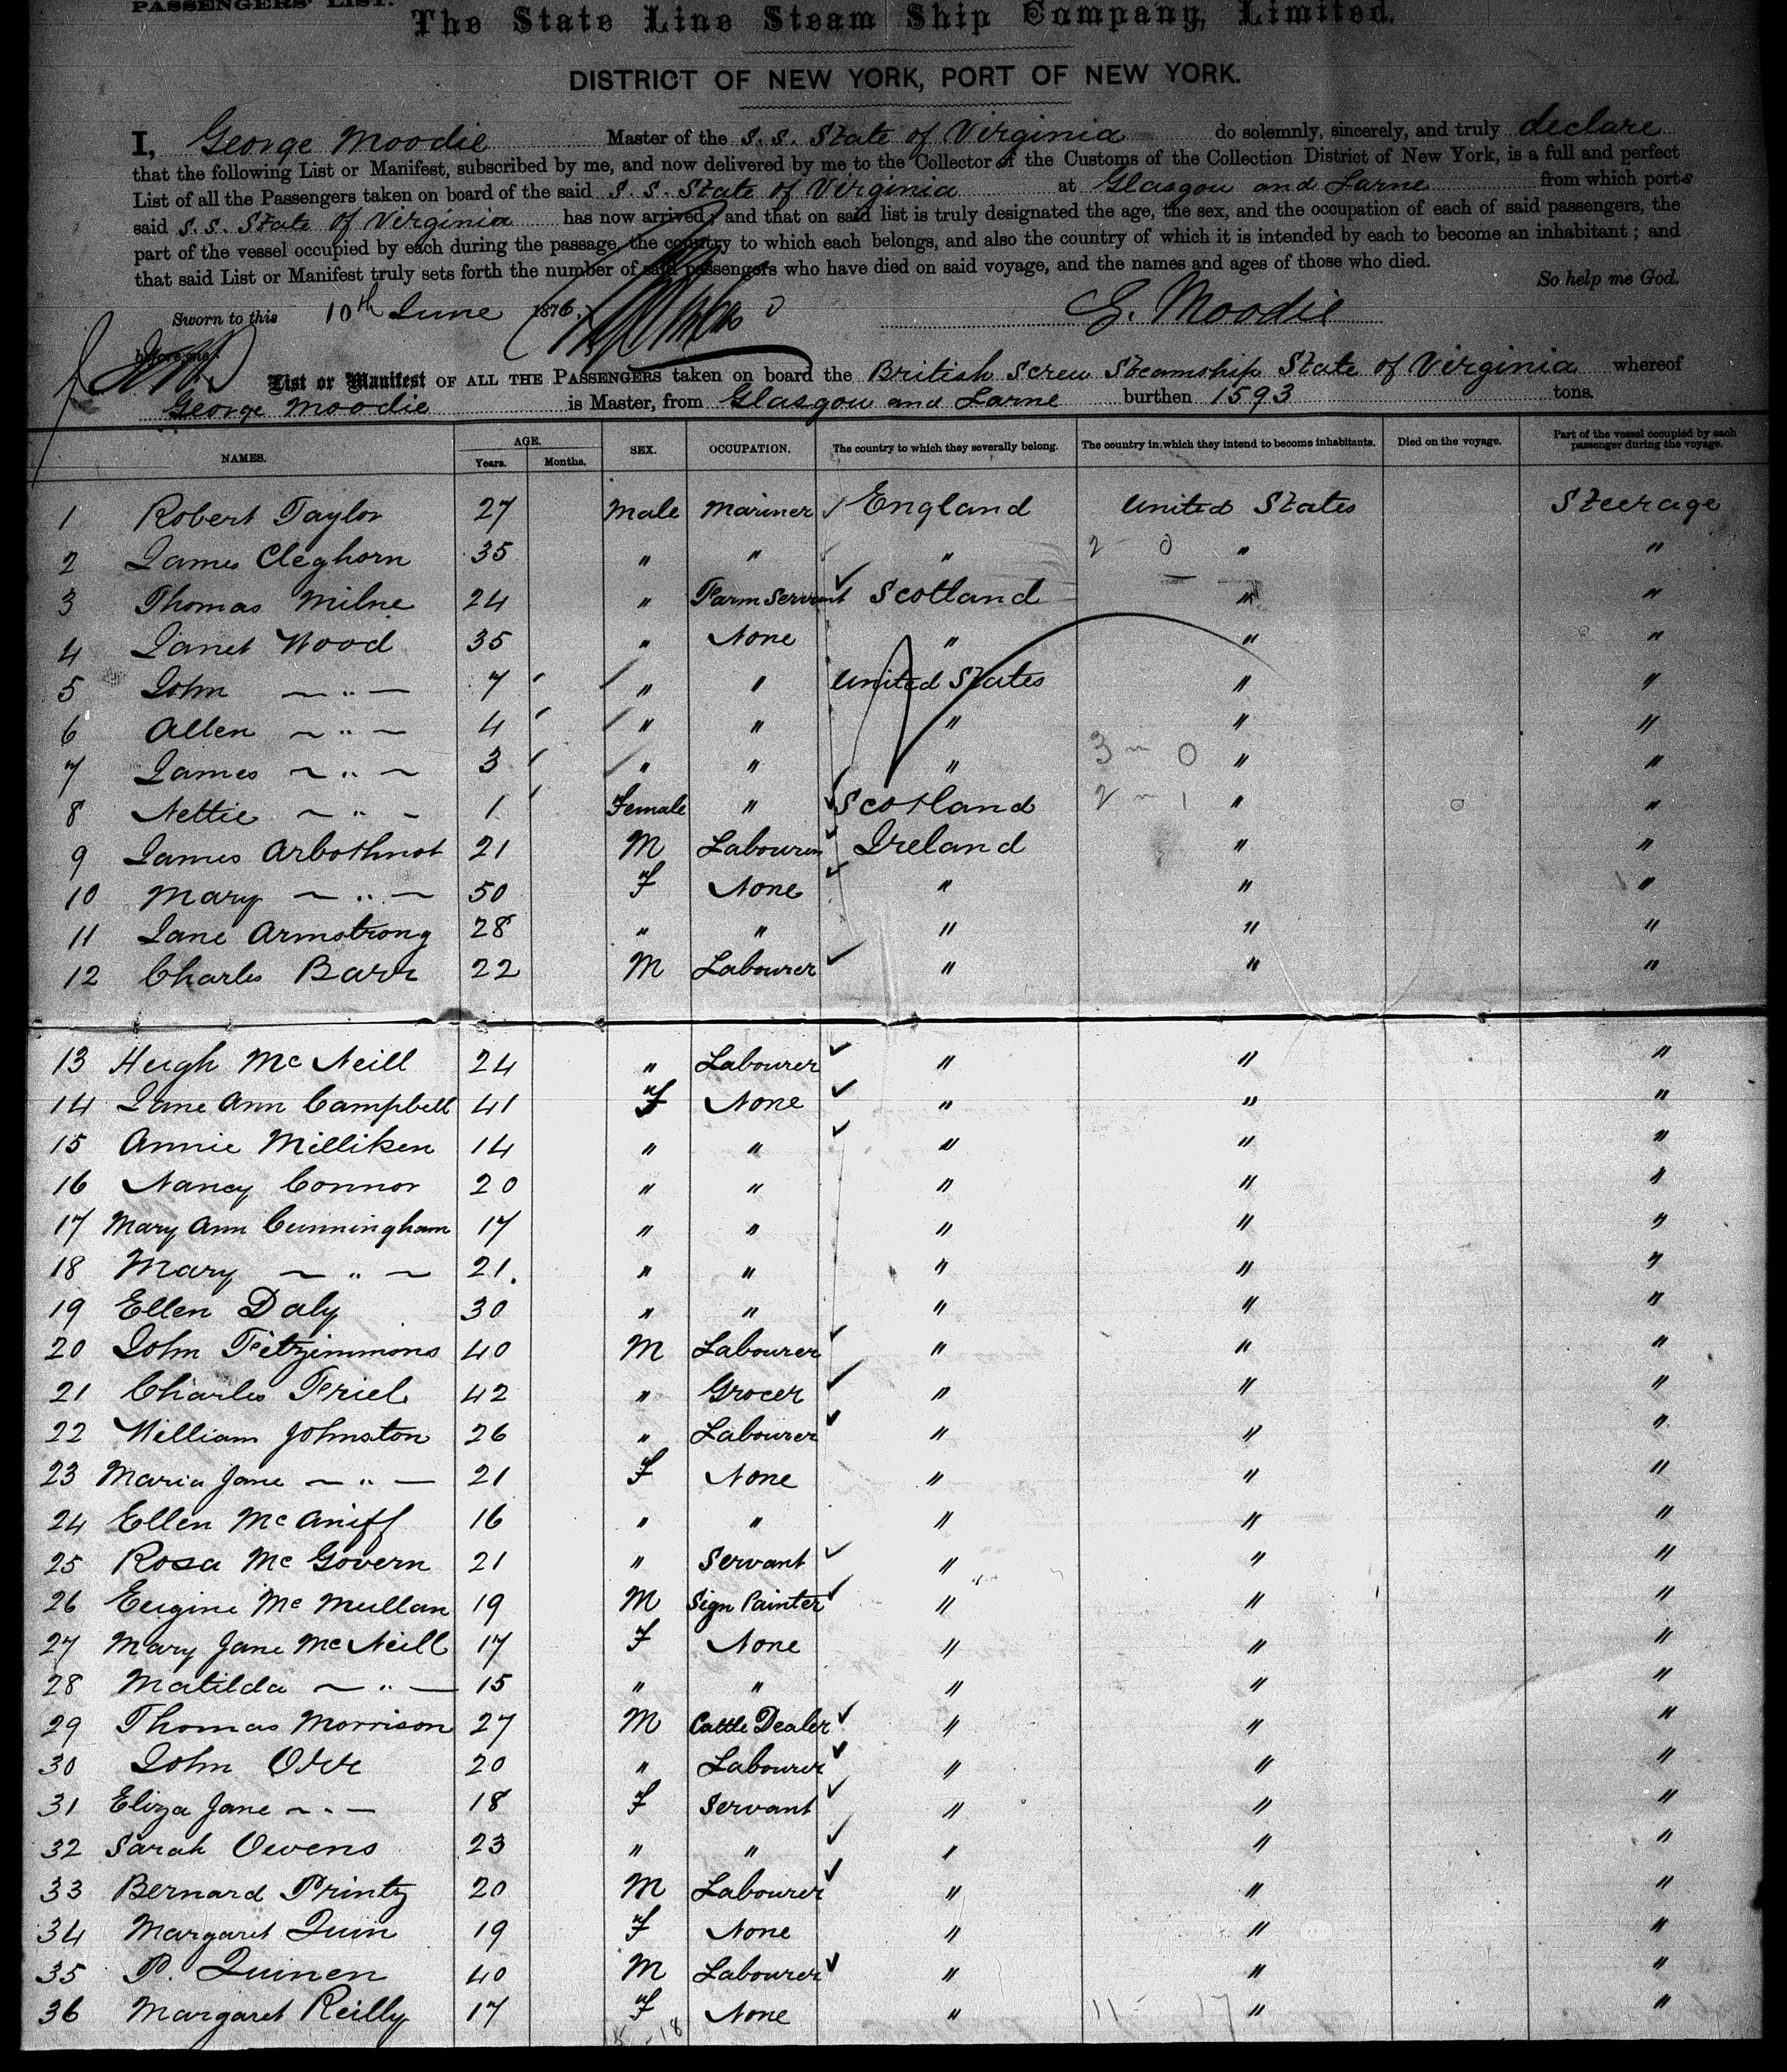 PASSENGERS' LIST.
The State Line Steam Ship Company, Limited.
DISTRICT OF NEW YORK, PORT OF NEW YORK.
I, George Moodie Master of the S. S. State of Virginia do solemnly, sincerely, and truly declare
that the following List or Manifest, subscribed by me, and now delivered by me to the Collector of the Customs of the Collection District of New York, is a full and perfect
List of all the Passengers taken on board of the said S. S. State of Virginia at Glasgow and Larne from which ports
said S. S. State of Virginia has now arrived; and that on said list is truly designated the age, the sex, and the occupation of each of said passengers, the
part of the vessel occupied by each during the passage, the country to which each belongs, and also the country of which it is intended by each to become an inhabitant; and
that said List or Manifest truly sets forth the number of said passengers who have died on said voyage, and the names and ages of those who died.
So help me God.
Sworn to this 10th June 1876, G. Moodie
before me,
List or Manifest OF ALL THE PASSENGERS taken on board the British Screw Steamship State of Virginia whereof
George Moodie is Master, from Glasgow and Larne burthen 1593 tons.
NAMES. AGE. Years. Months. SEX. OCCUPATION. The country to which they severally belong. The country in which they intend to become inhabitants. Died on the voyage. Part of the vessel occupied by each passenger during the voyage.
1 Robert Taylor 27 Male Mariner England United States Steerage
2 James Cleghorn 35 " " " 2 - 0 " "
3 Thomas Milne 24 " Farm Servant Scotland " "
4 Janet Wood 35 " None " " "
5 John — " — 7 " " United States " "
6 Allen — " — 4 " " " " "
7 James — " — 3 " " " 3 - 0 " "
8 Nettie — " — 1 Female " Scotland 2 - 1 " "
9 James Arbothnot 21 M Labourer Ireland " "
10 Mary — " — 50 F None " " "
11 Jane Armstrong 28 " " " " "
12 Charles Barr 22 M Labourer " " "
13 Hugh McNeill 24 " Labourer " " "
14 Jane Ann Campbell 41 F None " " "
15 Annie Milliken 14 " " " " "
16 Nancy Connor 20 " " " " "
17 Mary Ann Cunningham 17 " " " " "
18 Mary — " — 21. " " " " "
19 Ellen Daly 30 " " " " "
20 John Fitzsimmons 40 M Labourer " " "
21 Charles Friel 42 " Grocer " " "
22 William Johnston 26 " Labourer " " "
23 Maria Jane — " — 21 F None " " "
24 Ellen McAniff 16 " " " " "
25 Rosa McGovern 21 " Servant " " "
26 Eugine McMullan 19 M Sign Painter " " "
27 Mary Jane McNeill 17 F None " " "
28 Matilda — " — 15 " " " " "
29 Thomas Morrison 27 M Cattle Dealer " " "
30 John Orr 20 " Labourer " " "
31 Eliza Jane — " — 18 F Servant " " "
32 Sarah Owens 23 " " " " "
33 Bernard Printy 20 M Labourer " " "
34 Margaret Quin 19 F None " " "
35 P. Quinen 40 M Labourer " " "
36 Margaret Reilly 17 F None " 11 - 17 " "